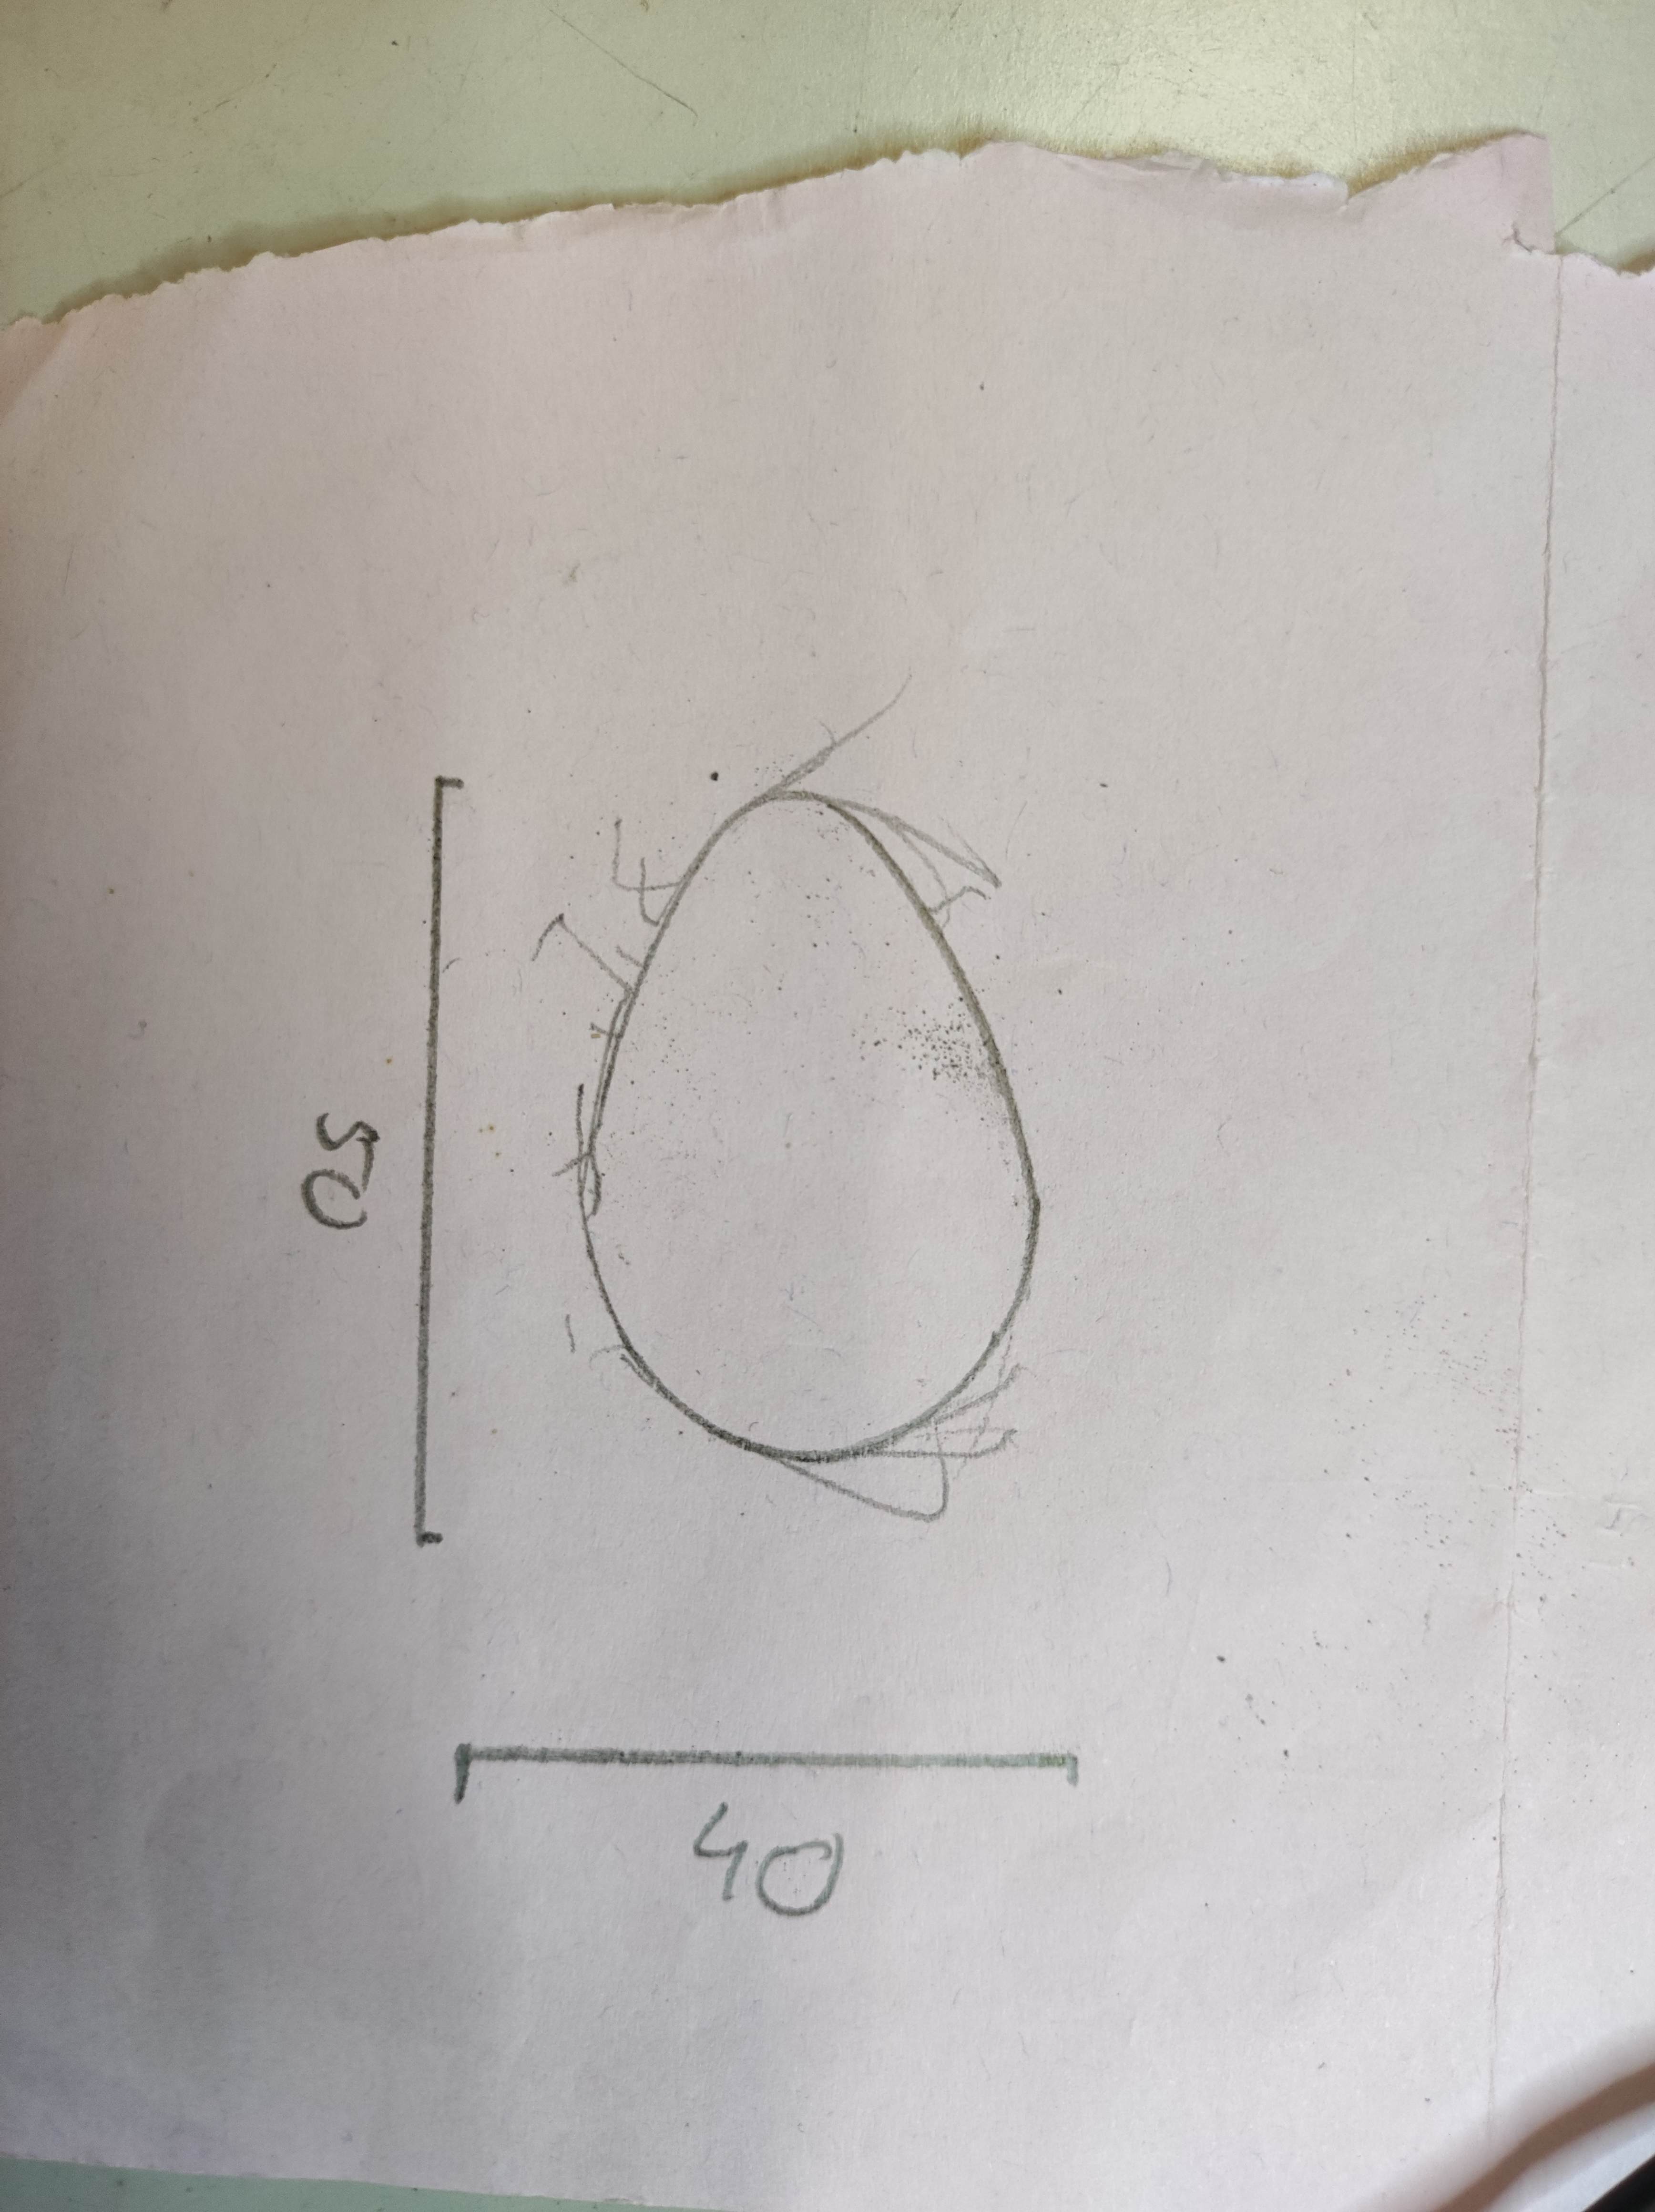 50
40